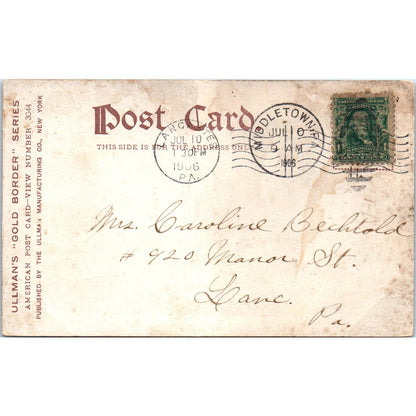 ULLMAN'S "GOLD BORDER" SERIES
AMERICAN POST CARD—VIEW NUMBER 3044
PUBLISHED BY THE ULLMAN MANUFACTURING CO., NEW YORK
Post Card
THIS SIDE IS FOR THE ADDRESS ONLY
JUL 10
1 30PM
1906
PA.
MIDDLETOWN, PA.
JUL 10
9 AM
1906
Mrs. Caroline Bechtold
# 920 Manor St.
Lanc.
Pa.